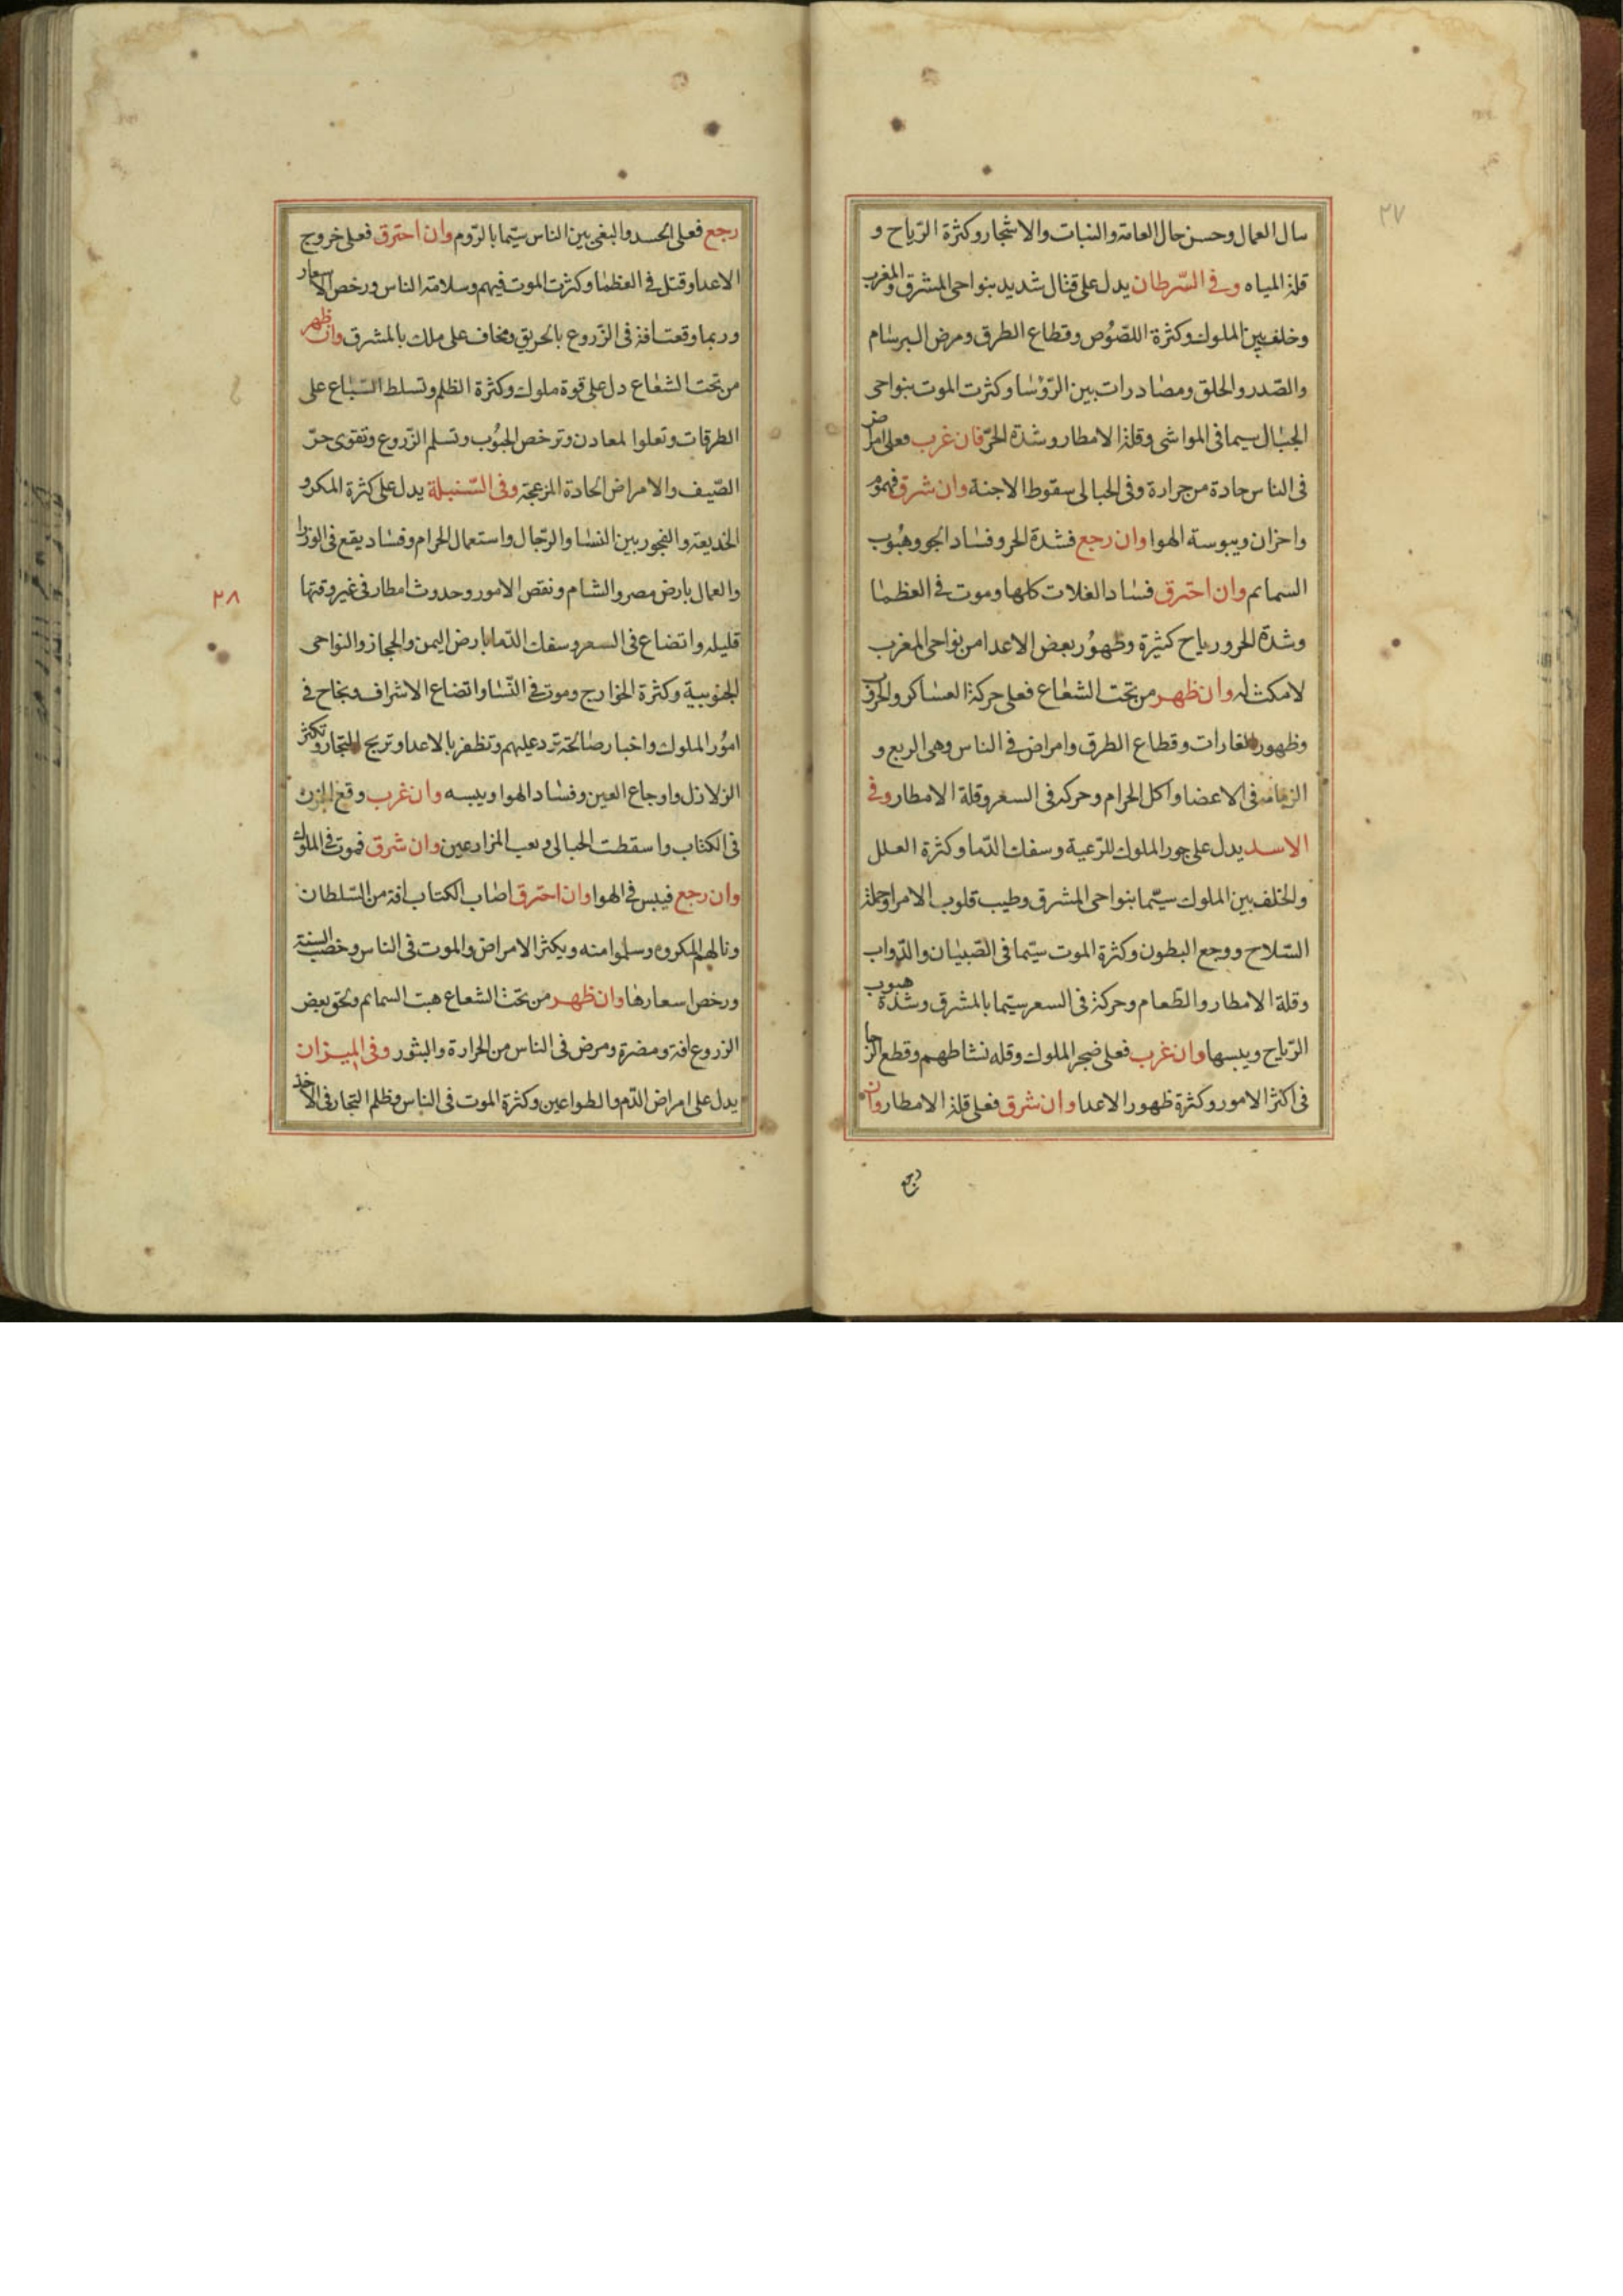 ٢٧
سال العمال وحسن حال العامة والنبات والاشجار وكثرة الرّياح و
قلة المياه وفي السّرطان يدل على قتال شديد بنواحي المشرق والمغرب
وخلف بين الملوك وكثرة اللصُوص وقطاع الطرق ومرض البرسام
والصّدر والحلق ومصادرات بين الرّؤسا وكثرت الموت بنواحي
الجبال سيما في المواشي وقلة الامطار وشدة الحرّ فان غرب فعلى امراض
في الناس حادة من حرارة وفي الحبالى سقوط الاجنة وان شرق فهموم
واحزان ويبوسة الهوا وان رجع فشدة الحر وفساد الجو وهبُوب
السمايم وان احترق فساد الغلات كلها وموت في العظما
وشدة الحر ورياح كثيرة وظهوُر بعض الاعدا من نواحي المغرب
لا مكث له وان ظهر من تحت الشعاع فعلى حركة العساكر والحرف
وظهور الغارات وقطاع الطرق وامراض في الناس وهي الربع و
الزمانه في الاعضا واكل الحرام وحركه في السعر وقلة الامطار وفي
الاسد يدل على جور الملوك للرّعية وسفك الدّما وكثرة العلل
والخلف بين الملوك سيّما بنواحي المشرق وطيب قلوب الامرا وحملة
السّلاح ووجع البطون وكثرة الموت سيّما في الصّبيان والدّواب
وقلة الامطار والطّعام وحركة في السعر سيّما بالمشرق وشدة هبوب
الرّياح ويبسها وان غرب فعلى ضجر الملوك وقله نشاطهم وقطع الرجا
في اكثر الامور وكثرة ظهور الاعدا وان شرق فعلى قلة الامطار وان
رجع
رجع فعلى الحسد والبغي بين الناس سيّما بالرّوم وان احترق فعلى خروج
الاعدا وقتل في العظما وكثرت الموت فيهم وسلامة الناس ورخص الاسعار
وربما وقعت افة في الزّروع بالحريق ويخاف على ملك بالمشرق وان ظهر
من تحت الشعاع دل على قوة ملوك وكثرة الظلم وتسلط السّباع على
الطرقات وتعلوا لمعادن وترخص الحبُوب وتسلم الزّروع وتقوى حرّ
الصّيف والامراض الحادة المزعجة وفي السّنبلة يدل على كثرة المكر و
الخديعة والفجور بين النسا والرّجال واستعمال الحرام وفساد يقع في الوزرا
والعمال بارض مصر والشام ونقص الامور وحدوث امطار في غير وقتها
٢٨
قليله واتضاع في السعر وسفك الدّما بارض اليمن والحجاز والنواحي
الجنوبية وكثرة الخوارج وموت في النّسا واتضاع الاشراف ونجاح في
اموُر الملوك واخبار صالحة ترد عليهم وتظفر بالاعدا وتربح التجار وتكثر
الزلازل واوجاع العين وفساد الهوا ويبسه وان غرب وقع الحزن
في الكتاب واسقطت الحبالى وتعب المزارعين وان شرق فموت في الملوك
وان رجع فيبس في الهوا وان احترق اصاب الكتاب افة من السّلطان
ونالهم المكروه وسلموا منه ويكثر الامراض والموت في الناس وخصب السنة
ورخص اسعارها وان ظهر من تحت الشعاع هبت السمايم ولحق بعض
الزروع افة ومضرة ومرض في الناس من الحرارة والبثور وفي الميزان
يدل على امراض الدّم والطواعين وكثرة الموت في الناس وظلم التجار في الاخذ